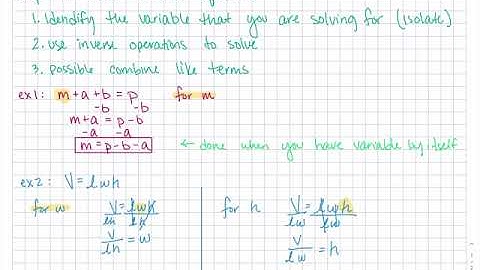 1. Identify the variable that you are solving for (isolate)
2. use inverse operations to solve
3. possible combine like terms
ex1: m+a+b = p for m
-b -b
m+a = p-b
-a -a
m=p-b-a ← done when you have variable by itself
ex2: V=lwh
for w V = lwh for h V = lwh
lh lh lw lw
V = w V = h
lh lw